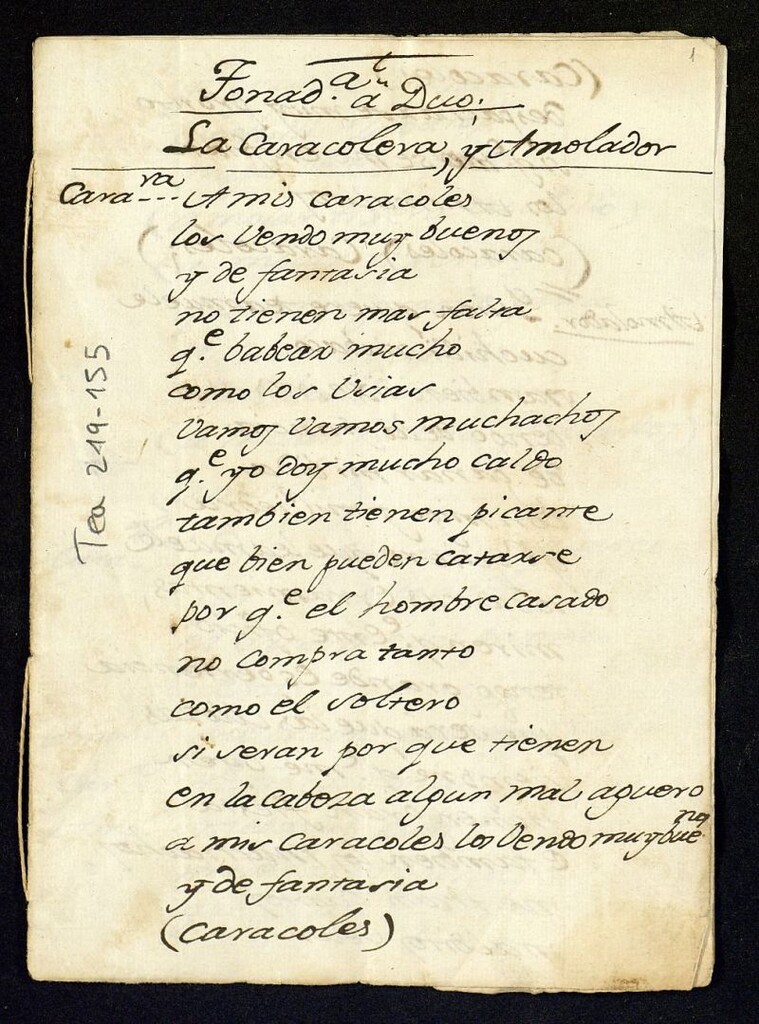 1
Tonad.ª à Duo;
La Caracolera, y Amolador
Cara---ra A mis caracoles
los Vendo muy buenos
y de fantasia
no tienen mas falta
q.e babear mucho
como los Usias
Vamos Vamos muchachos
q.e yo doy mucho caldo
tambien tienen picante
que bien pueden catarse
por q.e el hombre casado
no compra tanto
como el soltero
si seran por que tienen
en la cabeza algun mal aguero
a mis caracoles los Vendo muy buenos
y de fantasia
(caracoles)
Tea 219-155